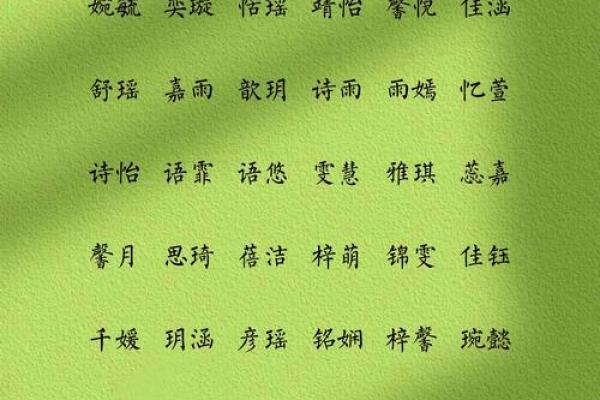 婉毓 奕璇 恬瑶 靖怡 馨悦 佳涵
舒瑶 嘉雨 歆玥 诗雨 雨嫣 忆萱
诗怡 语霏 语悠 雯慧 雅琪 蕊嘉
馨月 思琦 蓓洁 梓萌 锦雯 佳钰
千媛 玥涵 彦瑶 铭娴 梓馨 琬懿